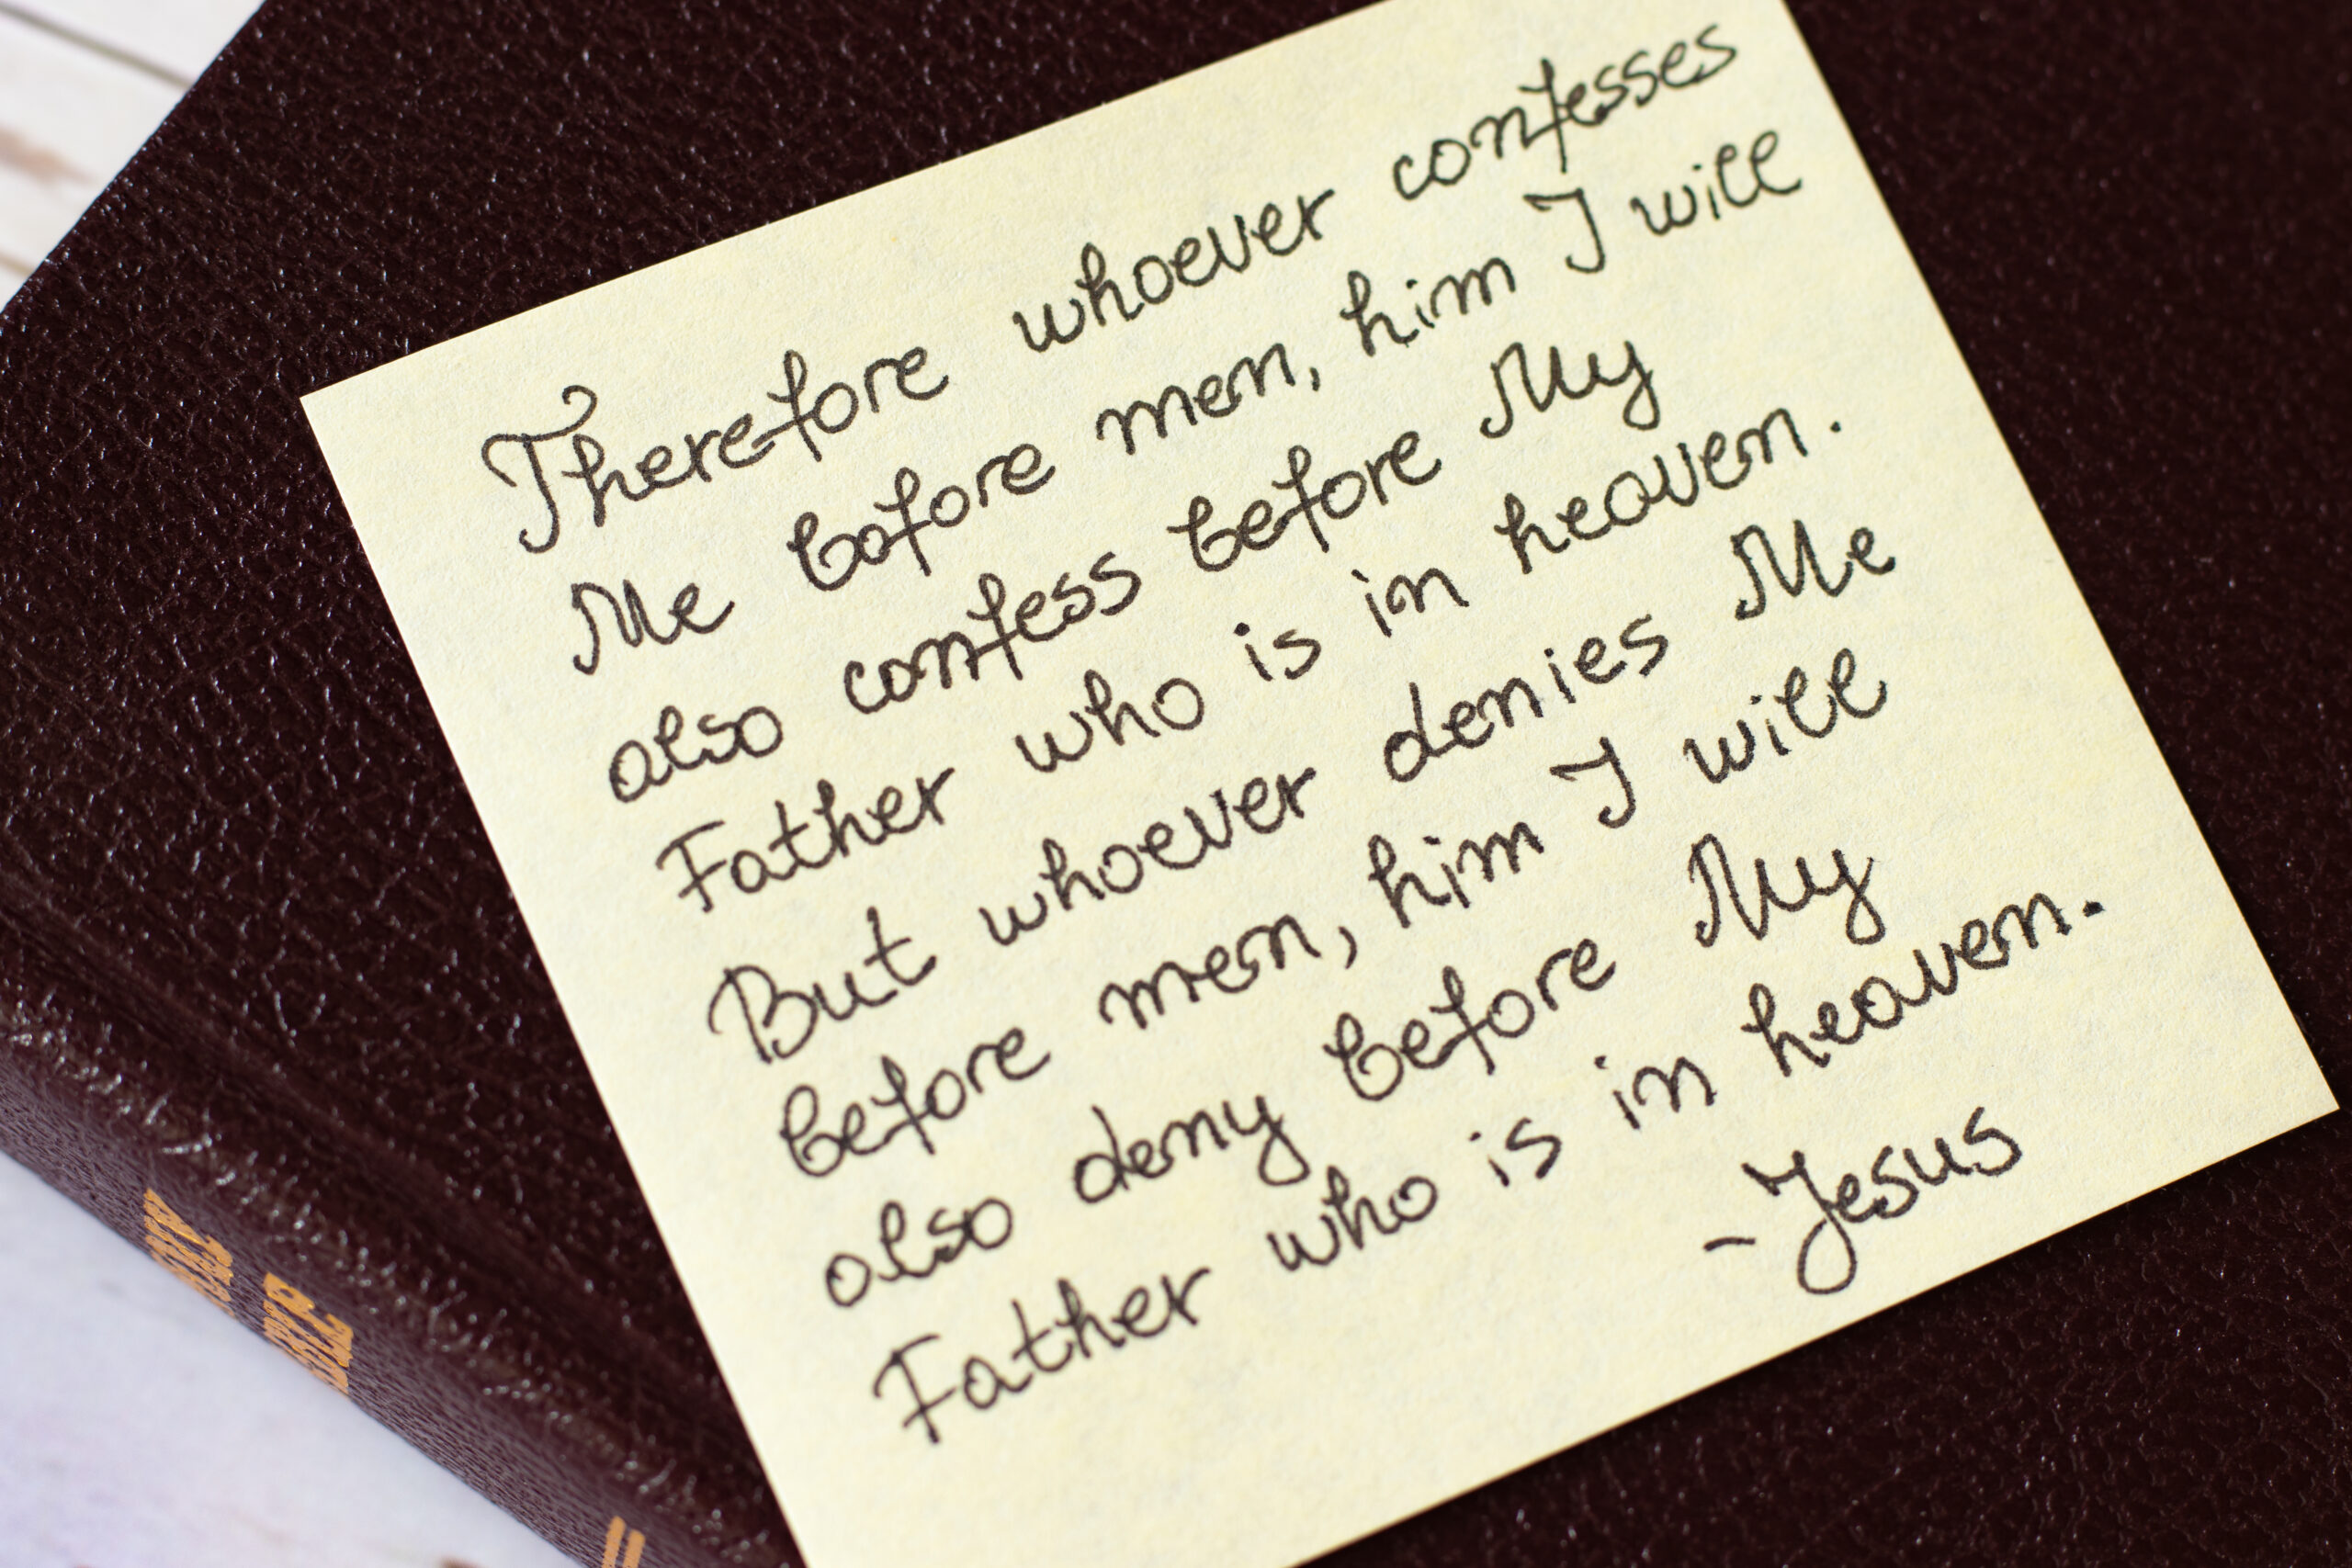 Therefore whoever confesses
Me before men, him I will
also confess before My
Father who is in heaven.
But whoever denies Me
before men, him I will
also deny before My
Father who is in heaven.
-Jesus